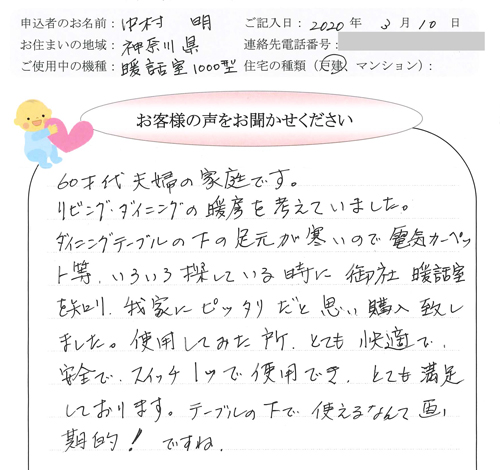 申込者のお名前：中村 明 ご記入日：2020年 3月 10日
お住まいの地域：神奈川県 連絡先電話番号：
ご使用中の機種：暖話室1000型 住宅の種類（戸建、マンション）：
お客様の声をお聞かせください
60才代夫婦の家庭です。
リビング・ダイニングの暖房を考えていました。
ダイニングテーブルの下の足元が寒いので電気カーペッ
ト等、いろいろ探している時に御社暖話室
を知り、我家にピッタリだと思い購入致し
ました。使用してみた所、とても快適で、
安全で、スイッチ1つで使用でき、とても満足
しております。テーブルの下で使えるなんて画
期的！ですね。